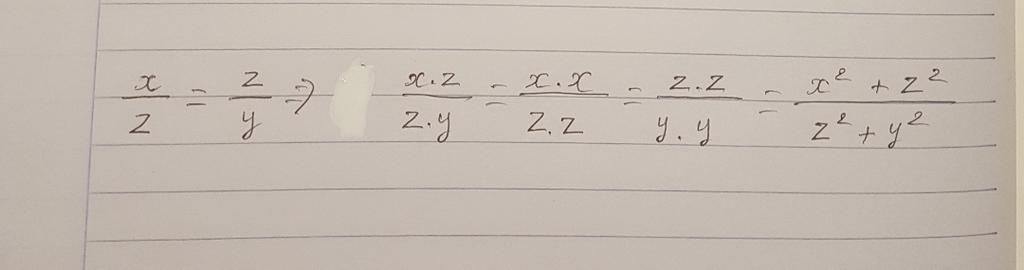 x/z = z/y ⇒ x.z/z.y = x.x/z.z = z.z/y.y = x² + z²/z² + y²